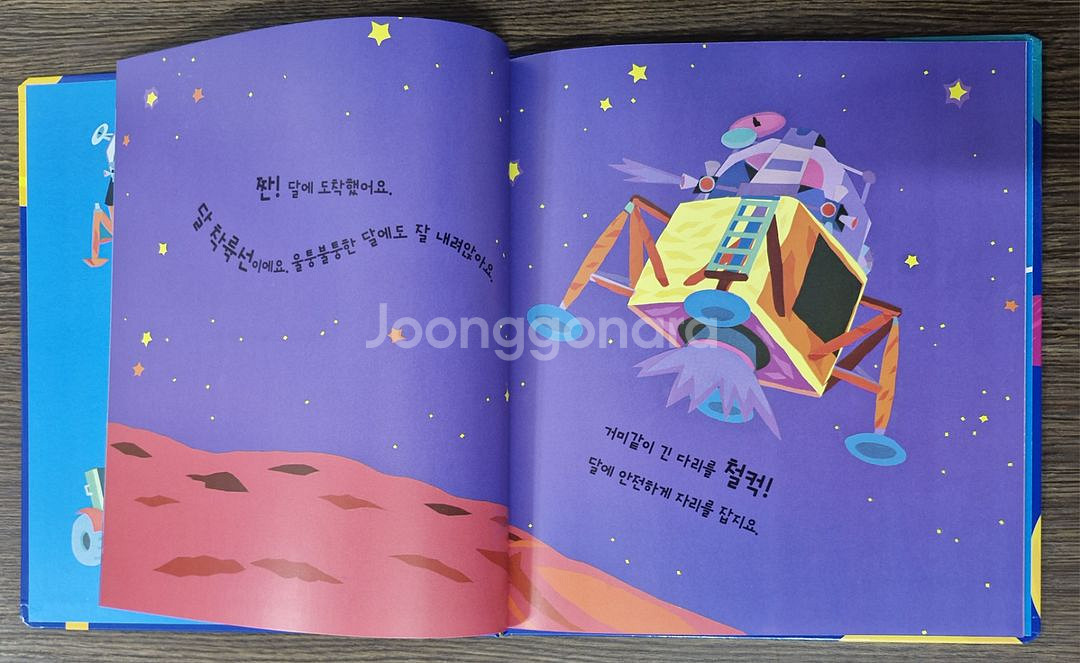 짠! 달에 도착했어요.
달 착륙선이에요. 울퉁불퉁한 달에도 잘 내려앉아요.
Joonggonara
거미같이 긴 다리를 철컥!
달에 안전하게 자리를 잡지요.